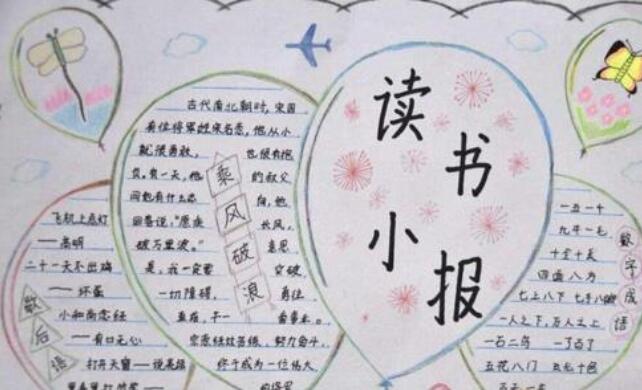 读书小报
古代南北朝时,宋国
有位将军姓宋名悫,他从小
就很勇敢,也很有抱
负。有一天,他的叔父
问他有什么志向,他
回答说,“愿乘长风,
破万里浪。”意思
是,我一定要突破
一切障碍,勇往
直前,干一番事业。
宗悫经过苦练,努力奋斗,
终于成为一位伟大
乘风破浪
飞机上点灯
——高明
二十一天不出鸡
——坏蛋
小和尚念经
——有口无心
打开天窗——说亮话
歇后语
一五一十
九牛一毛
十全十美
四面八方
七上八下 七手八脚
一人之下,万人之上
一石二鸟 一了百了
五花八门 五光十色
数字成语